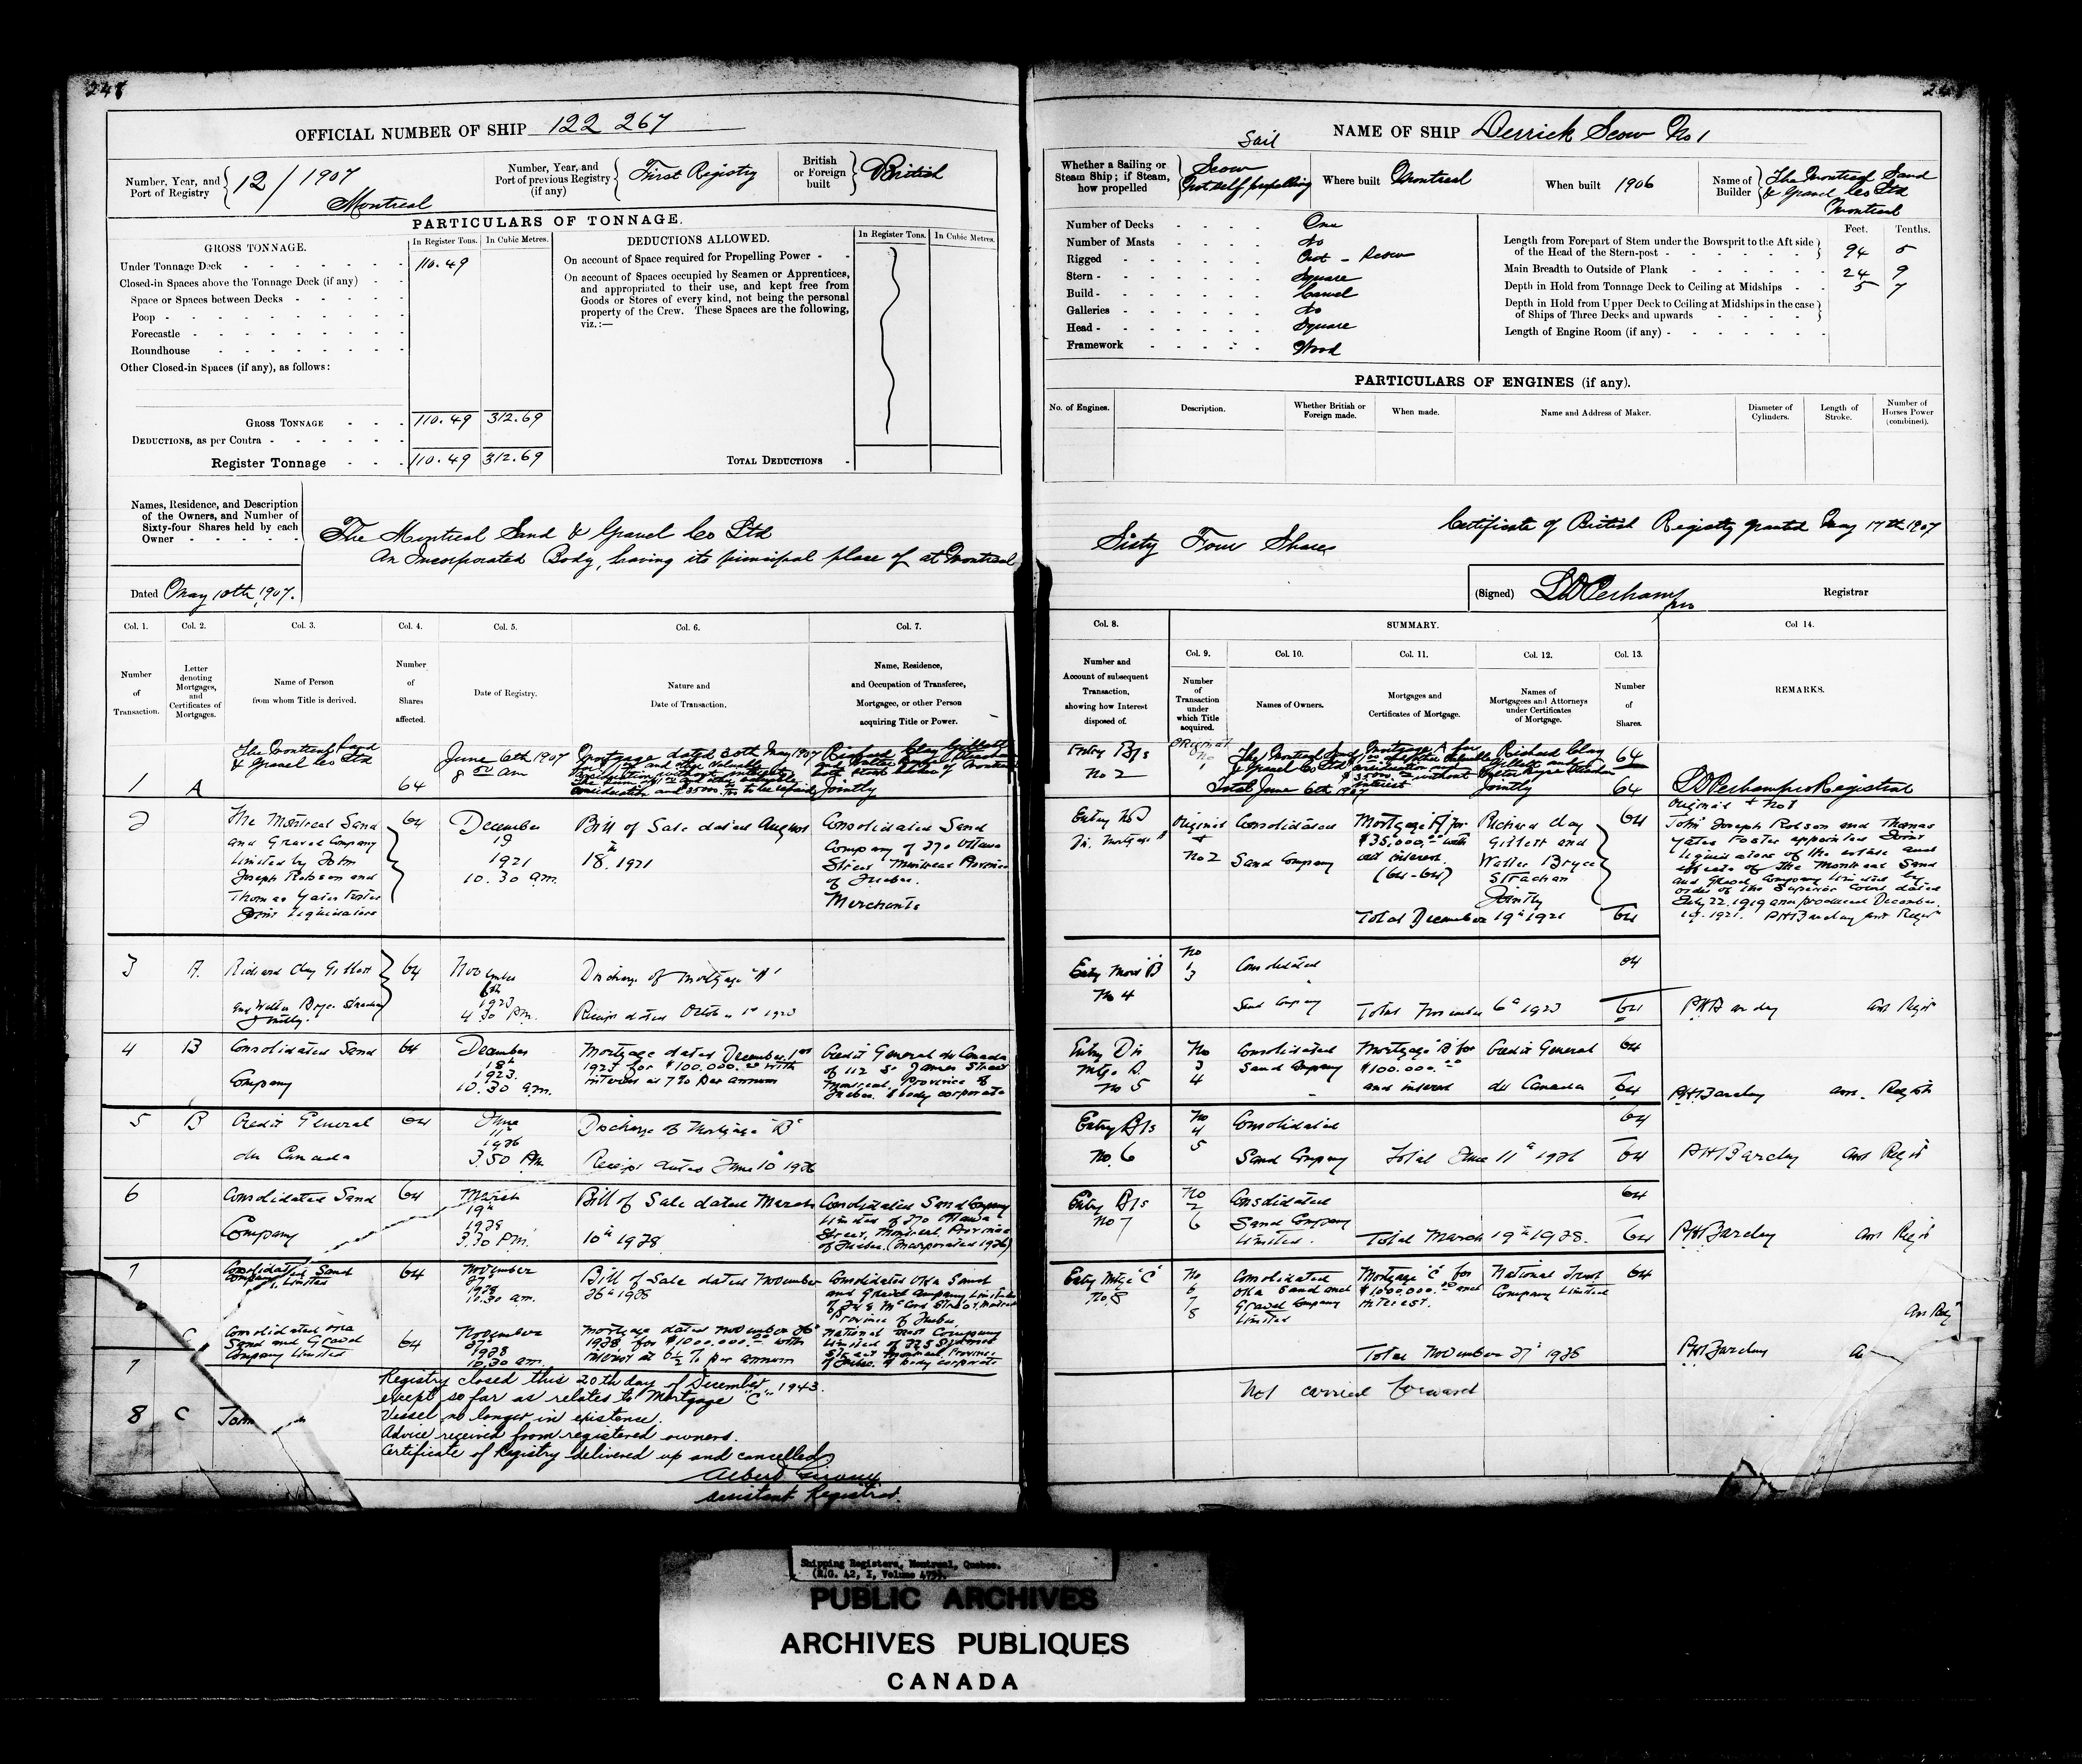 248
OFFICIAL NUMBER OF SHIP 122 267
Number, Year, and Port of Registry 12 / 1907 Montreal
Number, Year, and Port of previous Registry (if any) First Registry
British or Foreign built British
PARTICULARS OF TONNAGE.
GROSS TONNAGE.
In Register Tons.
In Cubic Metres.
Under Tonnage Deck 110.49
Closed-in Spaces above the Tonnage Deck (if any)
Space or Spaces between Decks
Poop
Forecastle
Roundhouse
Other Closed-in Spaces (if any), as follows:
GROSS TONNAGE 110.49 312.69
DEDUCTIONS, as per Contra
Register Tonnage 110.49 312.69
DEDUCTIONS ALLOWED.
In Register Tons.
In Cubic Metres.
On account of Space required for Propelling Power
On account of Spaces occupied by Seamen or Apprentices,
and appropriated to their use, and kept free from
Goods or Stores of every kind, not being the personal
property of the Crew. These Spaces are the following,
viz.:—
TOTAL DEDUCTIONS
Names, Residence, and Description
of the Owners, and Number of
Sixty-four Shares held by each
Owner
The Montreal Sand & Gravel Co Ltd
An Incorporated Body, having its principal place of at Montreal
Dated May 10th, 1907.
Col. 1. Col. 2. Col. 3. Col. 4. Col. 5. Col. 6. Col. 7.
Number of Transaction.
Letter denoting Mortgages, and Certificates of Mortgages.
Name of Person from whom Title is derived.
Number of Shares affected.
Date of Registry.
Nature and Date of Transaction.
Name, Residence, and Occupation of Transferee, Mortgagee, or other Person acquiring Title or Power.
1 A
The Montreal Sand
& Gravel Co Ltd
64
June 6th 1907
8 am
Mortgage dated 30th May 1907
Jointly
2
The Montreal Sand
and Gravel Company
Limited by John
Joseph Robson and
Thomas Yates Foster
Joint Liquidators
64
December
19
1921
10.30 am.
Bill of Sale dated August
18th 1921
Consolidated Sand
Company of 270 Ottawa
Street Montreal Province
of Quebec.
Merchants
3 A.
Richard Clay Gillett
and Walter Bryce Strachan
Jointly.
64
November
6th
1923
4.30 P.m.
Discharge of Mortgage "A"
Receipt dated October 1st 1923
4 B
Consolidated Sand
Company
64
December
18th
1923.
10.30 am.
Mortgage dated December 1st
1923 for $100.000.00 with
interest at 7% per annum
Credit General du Canada
of 112 St James Street
Montreal, Province of
Quebec. A body corporate
5 B
Credit General
du Canada
64
June
11th
1926
3.50 Pm.
Discharge of Mortgage "B"
Receipt dated June 10th 1926
6
Consolidated Sand
Company
64
March
19th
1928
3.30 P.m.
Bill of Sale dated March
10th 1928.
Consolidated Sand Company
Limited of 270 Ottawa
Street, Montreal, Province
of Quebec. (Incorporated 1926)
7
Consolidated Sand
Company Limited
64
November
27th
1928
10.30 am.
Bill of Sale dated November
26th 1928
Consolidated Oka Sand
and Gravel Company Limited
Province of Quebec.
C
Consolidated Oka
Sand and Gravel
Company Limited
64
November
27th
1928
10.30 am.
Mortgage dated November 26th
1928 for $1000.000.00 with
interest at 6½ % per annum
National Trust Company
Limited of 225 St James
Street Montreal, Province
of Quebec. A body corporate
7
8 C
Registry closed this 20th day of December 1943.
except so far as relates to Mortgage "C"
Vessel no longer in existence.
Advice received from registered owners.
Certificate of Registry delivered up and cancelled
Assistant Registrar.
NAME OF SHIP Derrick Scow No 1
Whether a Sailing or Steam Ship; if Steam, how propelled
Sail
Scow
Not self propelling
Where built Montreal
When built 1906
Name of Builder The Montreal Sand
& Gravel Co Ltd
Montreal
Number of Decks One
Number of Masts No
Rigged Not - Scow
Stern Square
Build Carvel
Galleries No
Head Square
Framework Wood
Feet. Tenths.
Length from Forepart of Stem under the Bowsprit to the Aft side
of the Head of the Stern-post 94 5
Main Breadth to Outside of Plank 24 9
Depth in Hold from Tonnage Deck to Ceiling at Midships 5 7
Depth in Hold from Upper Deck to Ceiling at Midships in the case
of Ships of Three Decks and upwards
Length of Engine Room (if any)
PARTICULARS OF ENGINES (if any).
No. of Engines.
Description.
Whether British or Foreign made.
When made.
Name and Address of Maker.
Diameter of Cylinders.
Length of Stroke.
Number of Horses Power (combined).
Certificate of British Registry granted May 17th 1907
Sixty Four Shares
(Signed) Registrar
Col. 8. SUMMARY. Col 14.
Col. 9. Col. 10. Col. 11. Col. 12. Col. 13.
Number and Account of subsequent Transaction, showing how Interest disposed of.
Number of Transaction under which Title acquired.
Names of Owners.
Mortgages and Certificates of Mortgage.
Names of Mortgagees and Attorneys under Certificates of Mortgage.
Number of Shares.
REMARKS.
Entry B/s
No 2
Original
The Montreal Sand
& Gravel Co Ltd
Mortgage A for
Richard Clay
Gillett and
Walter Bryce Strachan
Jointly
64
Total June 6th 1907
64
Registrar
Original
No 2
Consolidated
Sand Company
Mortgage "A" for
$35,000.00 with
out interest.
(64-64)
Richard Clay
Gillett and
Walter Bryce
Strachan
Jointly
64
Total December 19th 1921
64
John Joseph Robson and Thomas
Yates Foster appointed Joint
Liquidators of the estate and
effects of the Montreal Sand
and Gravel Company Limited by
order of the Superior Court dated
July 22, 1919 and produced December
19. 1921.
No 4
No
1
3
Consolidated
Sand Company
64
Total November 6th 1923
64
Entry Dis
Mtge. B.
No 5
No
3
4
Consolidated
Sand Company
Mortgage "B" for
$100.000.00
and interest
Credit General
du Canada
64
64
PH Barclay
Entry B/s
No. 6
No
4
5
Consolidated
Sand Company
64
Total June 11th 1926
64
PH Barclay
Entry B/s
No 7
No
2
6
Consolidated
Sand Company
Limited.
64
Total March 19th 1928.
64
PH Barclay
Entry Mtge "C"
No. 8
No
6
7
8
Consolidated
Oka Sand and
Gravel Company
Limited
Mortgage "C" for
$1000.000.00 and
interest.
National Trust
Company Limited
64
Total November 27th 1928
PH Barclay
Not carried forward
Shipping Registers, Montreal, Quebec.
PUBLIC ARCHIVES
ARCHIVES PUBLIQUES
CANADA